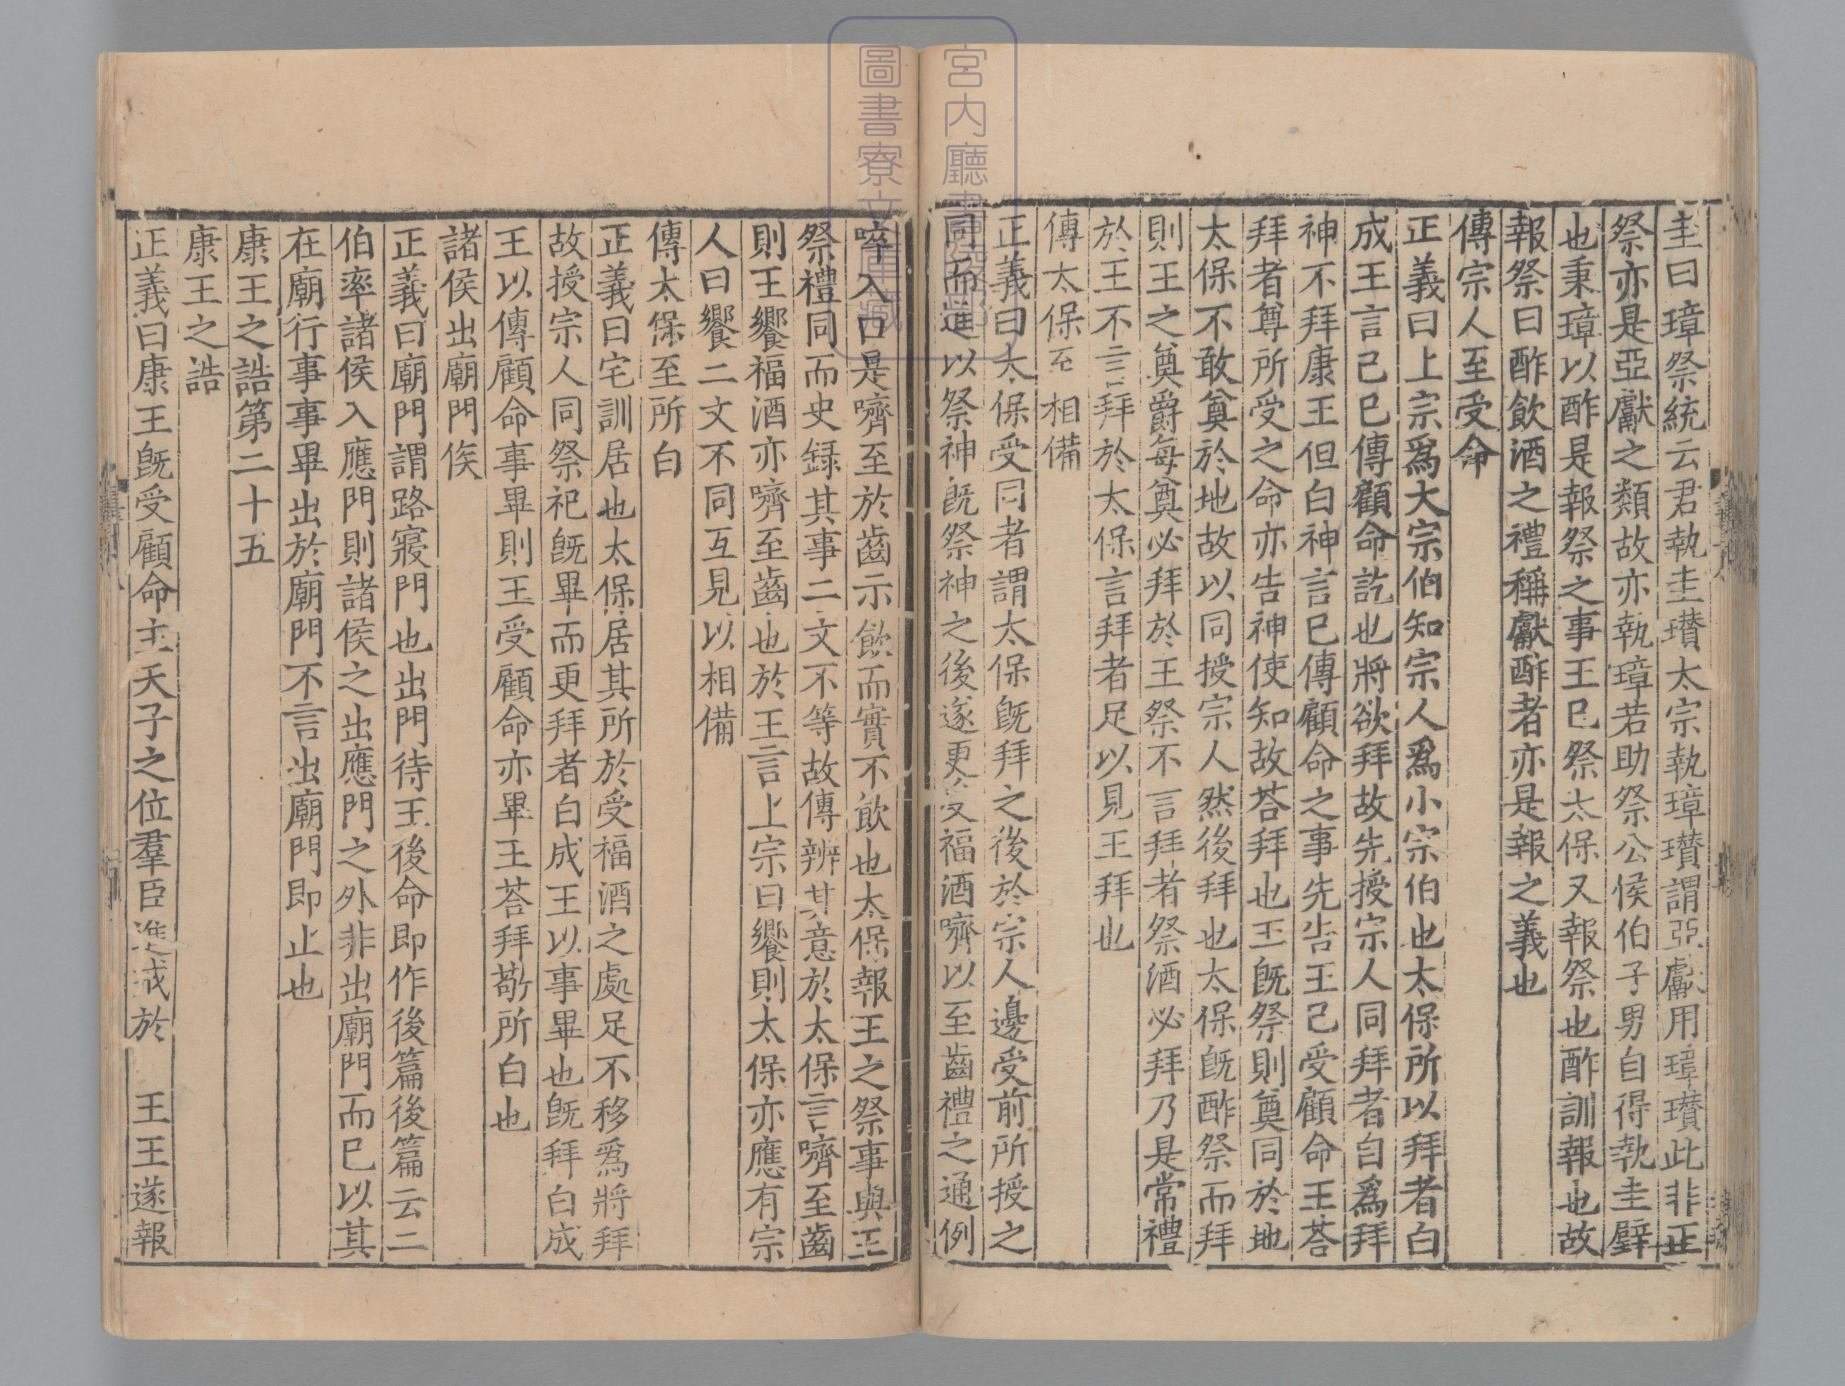 圭曰璋祭統云君執圭瓚太宗執璋瓚謂亞獻用璋瓚此非正
祭亦是亞獻之類故亦執璋若助祭公侯伯子男自得執圭璧
也秉璋以酢是報祭之事王已祭太保又報祭也酢訓報也故
報祭曰酢飲酒之禮稱獻酢者亦是報之義也
傳宗人至受命
正義曰上宗爲大宗伯知宗人爲小宗伯也太保所以拜者白
成王言已已傳顧命訖也將欲拜故先授宗人同拜者自爲拜
神不拜康王但白神言已傳顧命之事先告王已受顧命王荅
拜者尊所受之命亦告神使知故荅拜也王旣祭則奠同於地
太保不敢奠於地故以同授宗人然後拜也太保旣酢祭而拜
則王之奠爵每奠必拜於王祭不言拜者祭酒必拜乃是常禮
於王不言拜於太保言拜者足以見王拜也
傳太保至相備
正義曰太保受同者謂太保旣拜之後於宗人邊受前所授之
同而進以祭神旣祭神之後遂更受福酒嚌以至齒禮之通例
啐入口是嚌至於齒示飲而實不飲也太保報王之祭事與王
祭禮同而史録其事二文不等故傳辨其意於太保言嚌至齒
則王饗福酒亦嚌至齒也於王言上宗曰饗則太保亦應有宗
人曰饗二文不同互見以相備
傳太保至所白
正義曰宅訓居也太保居其所於受福酒之處足不移爲將拜
故授宗人同祭祀旣畢而更拜者白成王以事畢也旣拜白成
王以傳顧命事畢則王受顧命亦畢王荅拜敬所白也
諸侯出廟門俟
正義曰廟門謂路寢門也出門待王後命即作後篇後篇云二
伯率諸侯入應門則諸侯之出應門之外非出廟門而已以其
在廟行事事畢出於廟門不言出廟門即止也
康王之誥第二十五
康王之誥
正義曰康王旣受顧命主天子之位羣臣進戒於 王王遂報
宮内廳
圖書寮文庫藏